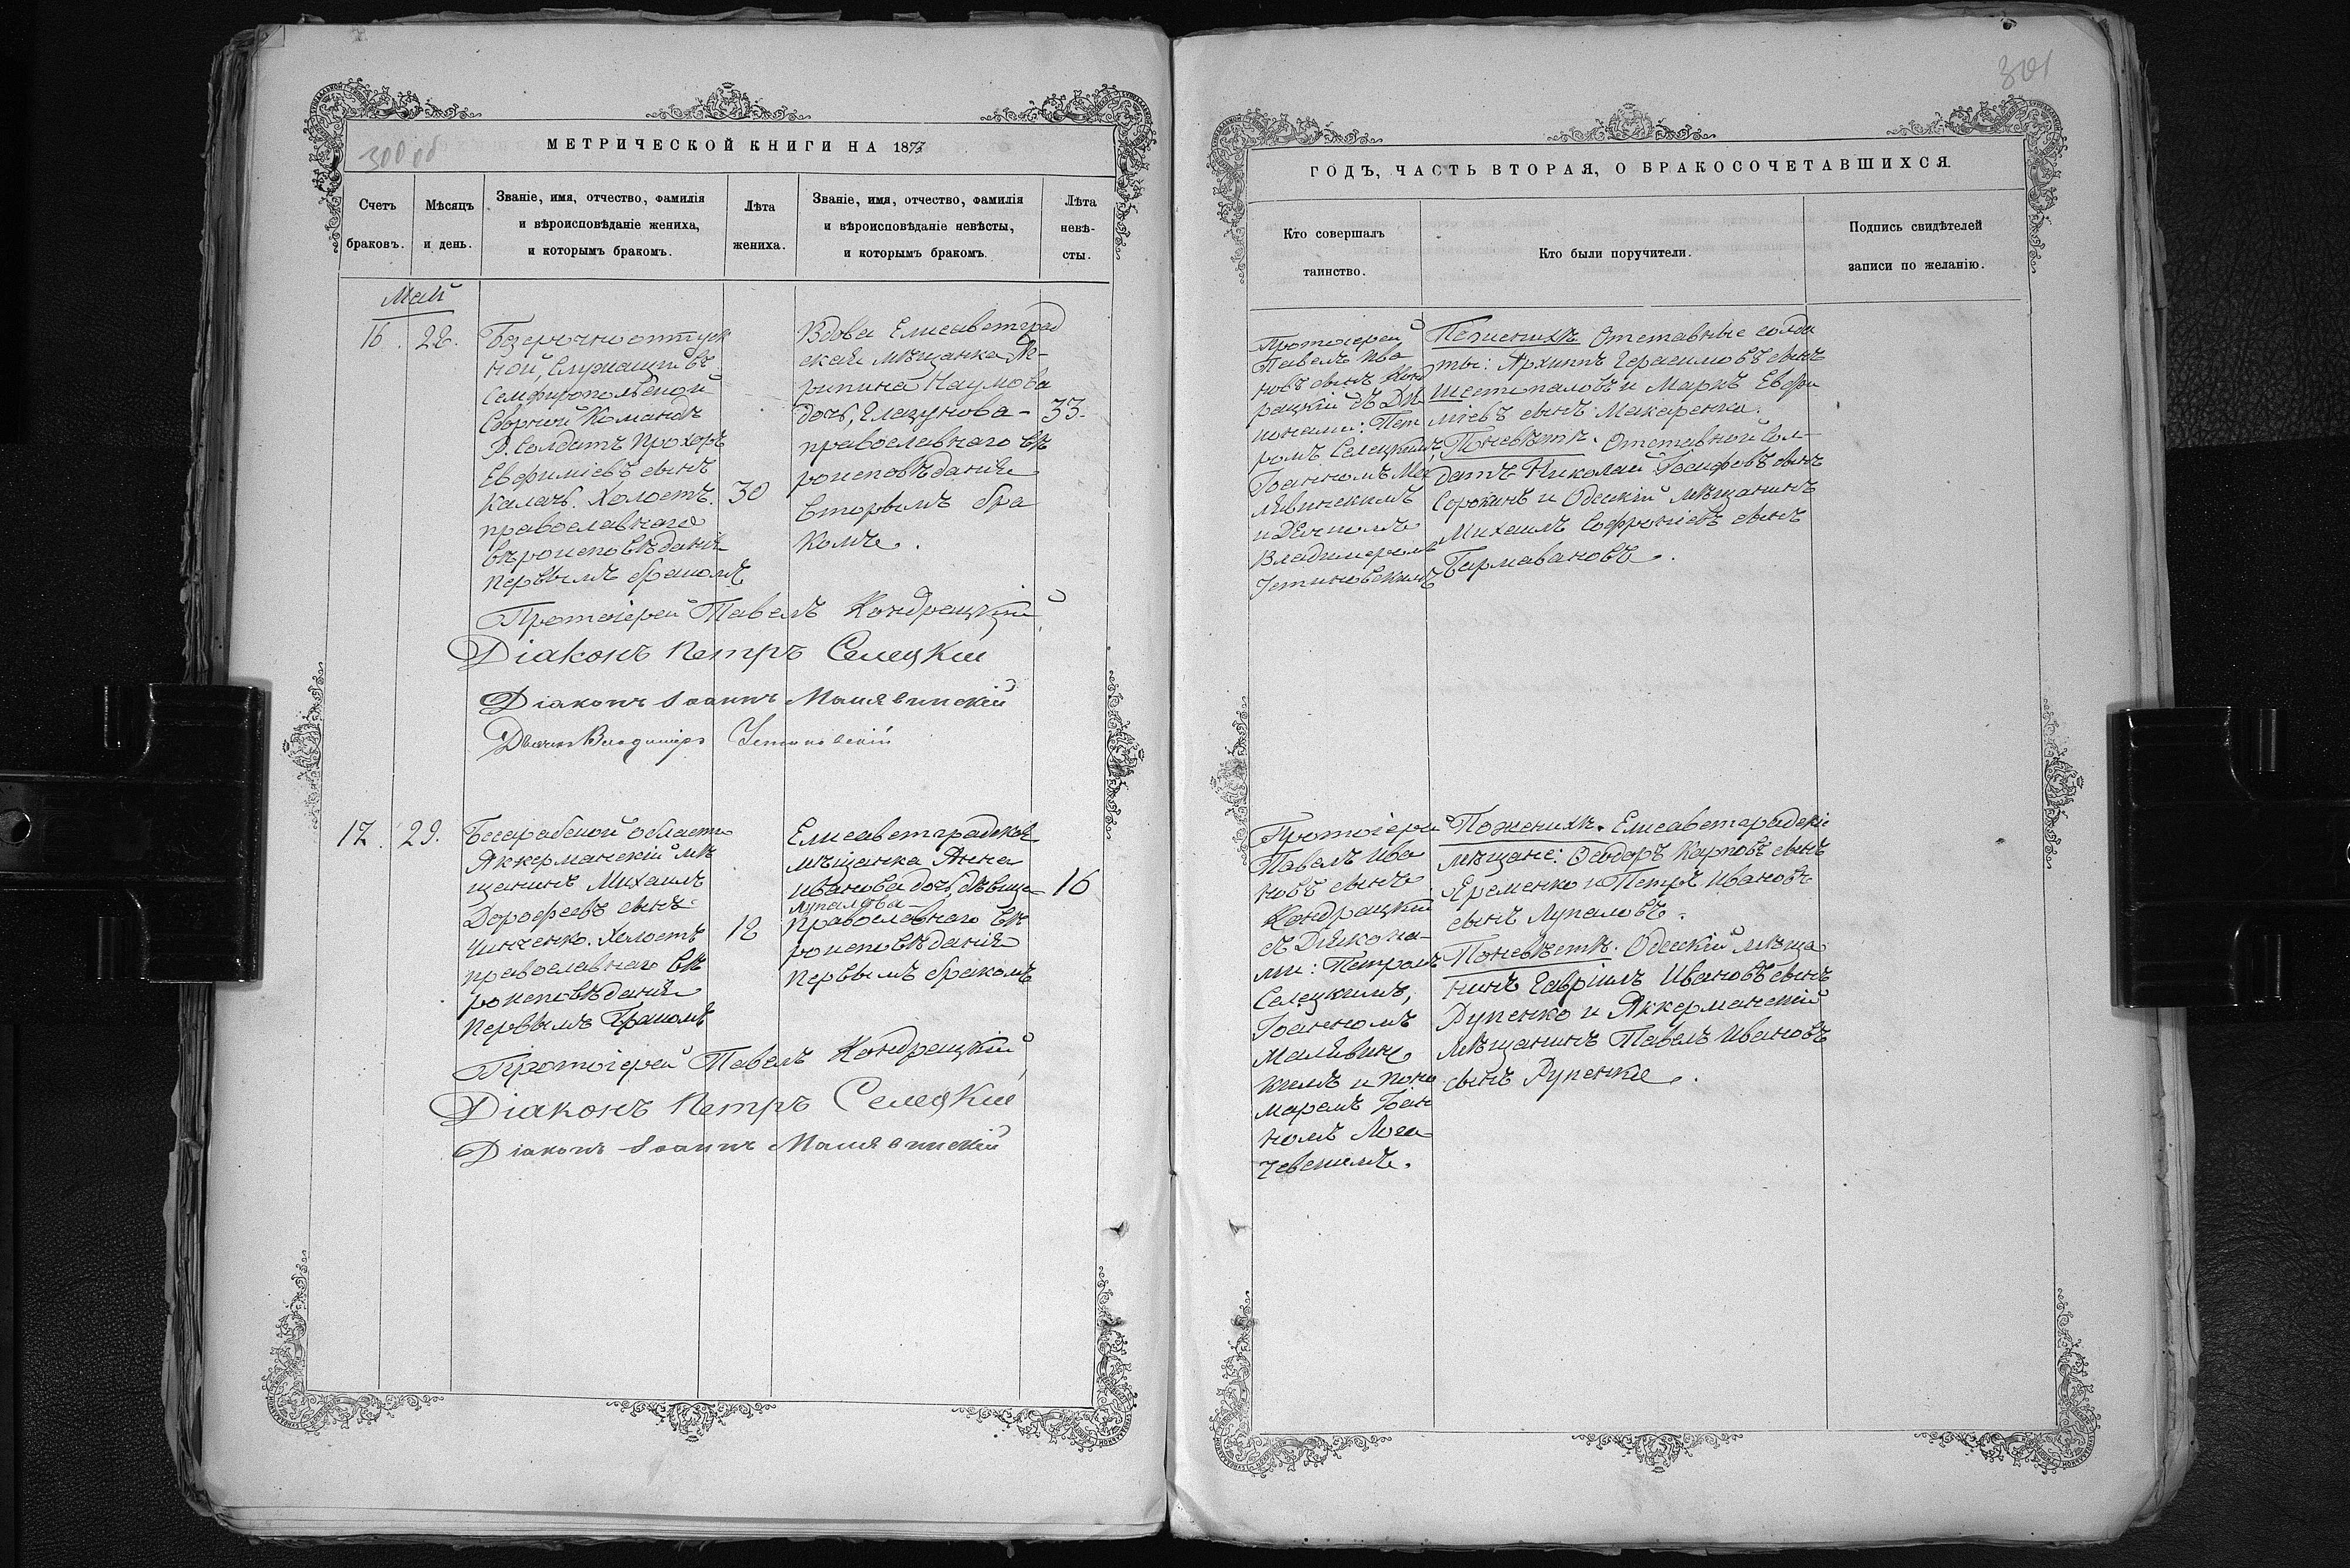 300 об
МЕТРИЧЕСКОЙ КНИГИ НА 1873
Счетъ браковъ.
Мѣсяцъ и день.
Званіе, имя, отчество, фамилія
и вѣроисповѣданіе жениха,
и которымъ бракомъ.
Лѣта
жениха.
Званіе, имя, отчество, фамилія
и вѣроисповѣданіе невѣсты,
и которымъ бракомъ.
Лѣта
невѣ-
сты.
Май
16. 22.
Безсрочноотпуск
ной, служащій въ
Симферопольской
Сборной Командѣ
Р. Солдатъ Прохоръ
Евфиміевъ сынъ
Калачъ. Холостъ.
православнаго
вѣроисповѣданія
первымъ бракомъ
30
Вдова Елисаветград
ская мѣщанка Аг-
рипина Наумова
дочь, Глазунова -
православнаго вѣ
роисповѣданія
вторымъ бра
комъ.
33.
Протоіерей Павелъ Кондрацкій,
Діаконъ Петръ Селецкій
Діаконъ Іоаннъ Малявинскій
Дьячокъ Владиміръ Устиновскій
17. 29.
Бессарабской области
Аккерманскій мѣ
щанинъ Михаилъ
Дорофеевъ сынъ
Чинченко. Холостъ
православнаго вѣ
роисповѣданія
первымъ бракомъ
18
Елисаветградская
мѣщанка Анна
Иванова дочь дѣвица
Лупалова -
православнаго вѣ
роисповѣданія
первымъ бракомъ
16
Протоіерей Павелъ Кондрацкій,
Діаконъ Петръ Селецкій
Діаконъ Іоаннъ Малявинскій
301
ГОДЪ, ЧАСТЬ ВТОРАЯ, О БРАКОСОЧЕТАВШИХСЯ.
Кто совершалъ
таинство.
Кто были поручители.
Подпись свидѣтелей
записи по желанію.
Протоіерей
Павелъ Ива
новъ сынъ Конд
рацкій съ Діа
конами: Пет
ромъ Селецкимъ,
Іоанномъ Мал
явинскимъ
и Дьячкомъ
Владимеромъ
Устиновскимъ
По женихѣ Отставные солда
ты: Архипъ Герасимовъ сынъ
Шестопаловъ и Маркъ Евфи
міевъ сынъ Макаренко.
По невѣстѣ. Отставной Сол-
датъ Николай Іосифовъ сынъ
Сорокинъ и Одесскій мѣщанинъ
Михаилъ Софроніевъ сынъ
Протоіерей
Павелъ Ива
новъ сынъ
Кондрацкій
съ Діякона-
ми: Петромъ
Селецкимъ,
Іоанномъ
Малявинс
кимъ и поно
маремъ Іоан
номъ Лога
чевскимъ.
По женихѣ. Елисаветградскіе
мѣщане: Ѳеодоръ Карповъ сынъ
Яременко и Петръ Ивановъ
сынъ Лупаловъ.
По невѣстѣ. Одесскій мѣща
нинъ Гавріилъ Ивановъ сынъ
Рупенко и Аккерманскій
мѣщанинъ Павелъ Ивановъ
сынъ Рупенко.